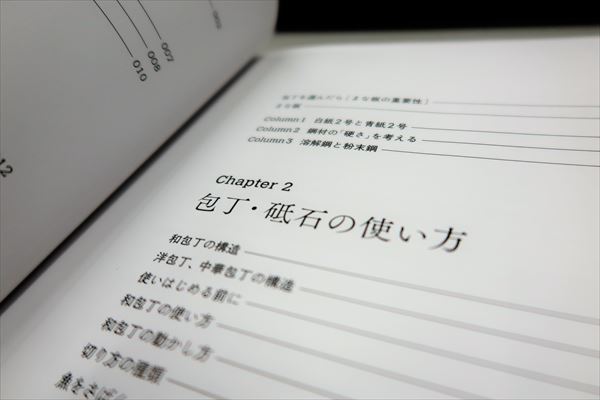 002
007
008
010
12
包丁を選んだら[まな板の重要性]
まな板
Column 1 白紙2号と青紙2号
Column 2 鋼材の「硬さ」を考える
Column 3 溶解鋼と粉末鋼
Chapter 2
包丁・砥石の使い方
和包丁の構造
洋包丁、中華包丁の構造
使いはじめる前に
和包丁の使い方
和包丁の動かし方
切り方の種類
魚をさばく